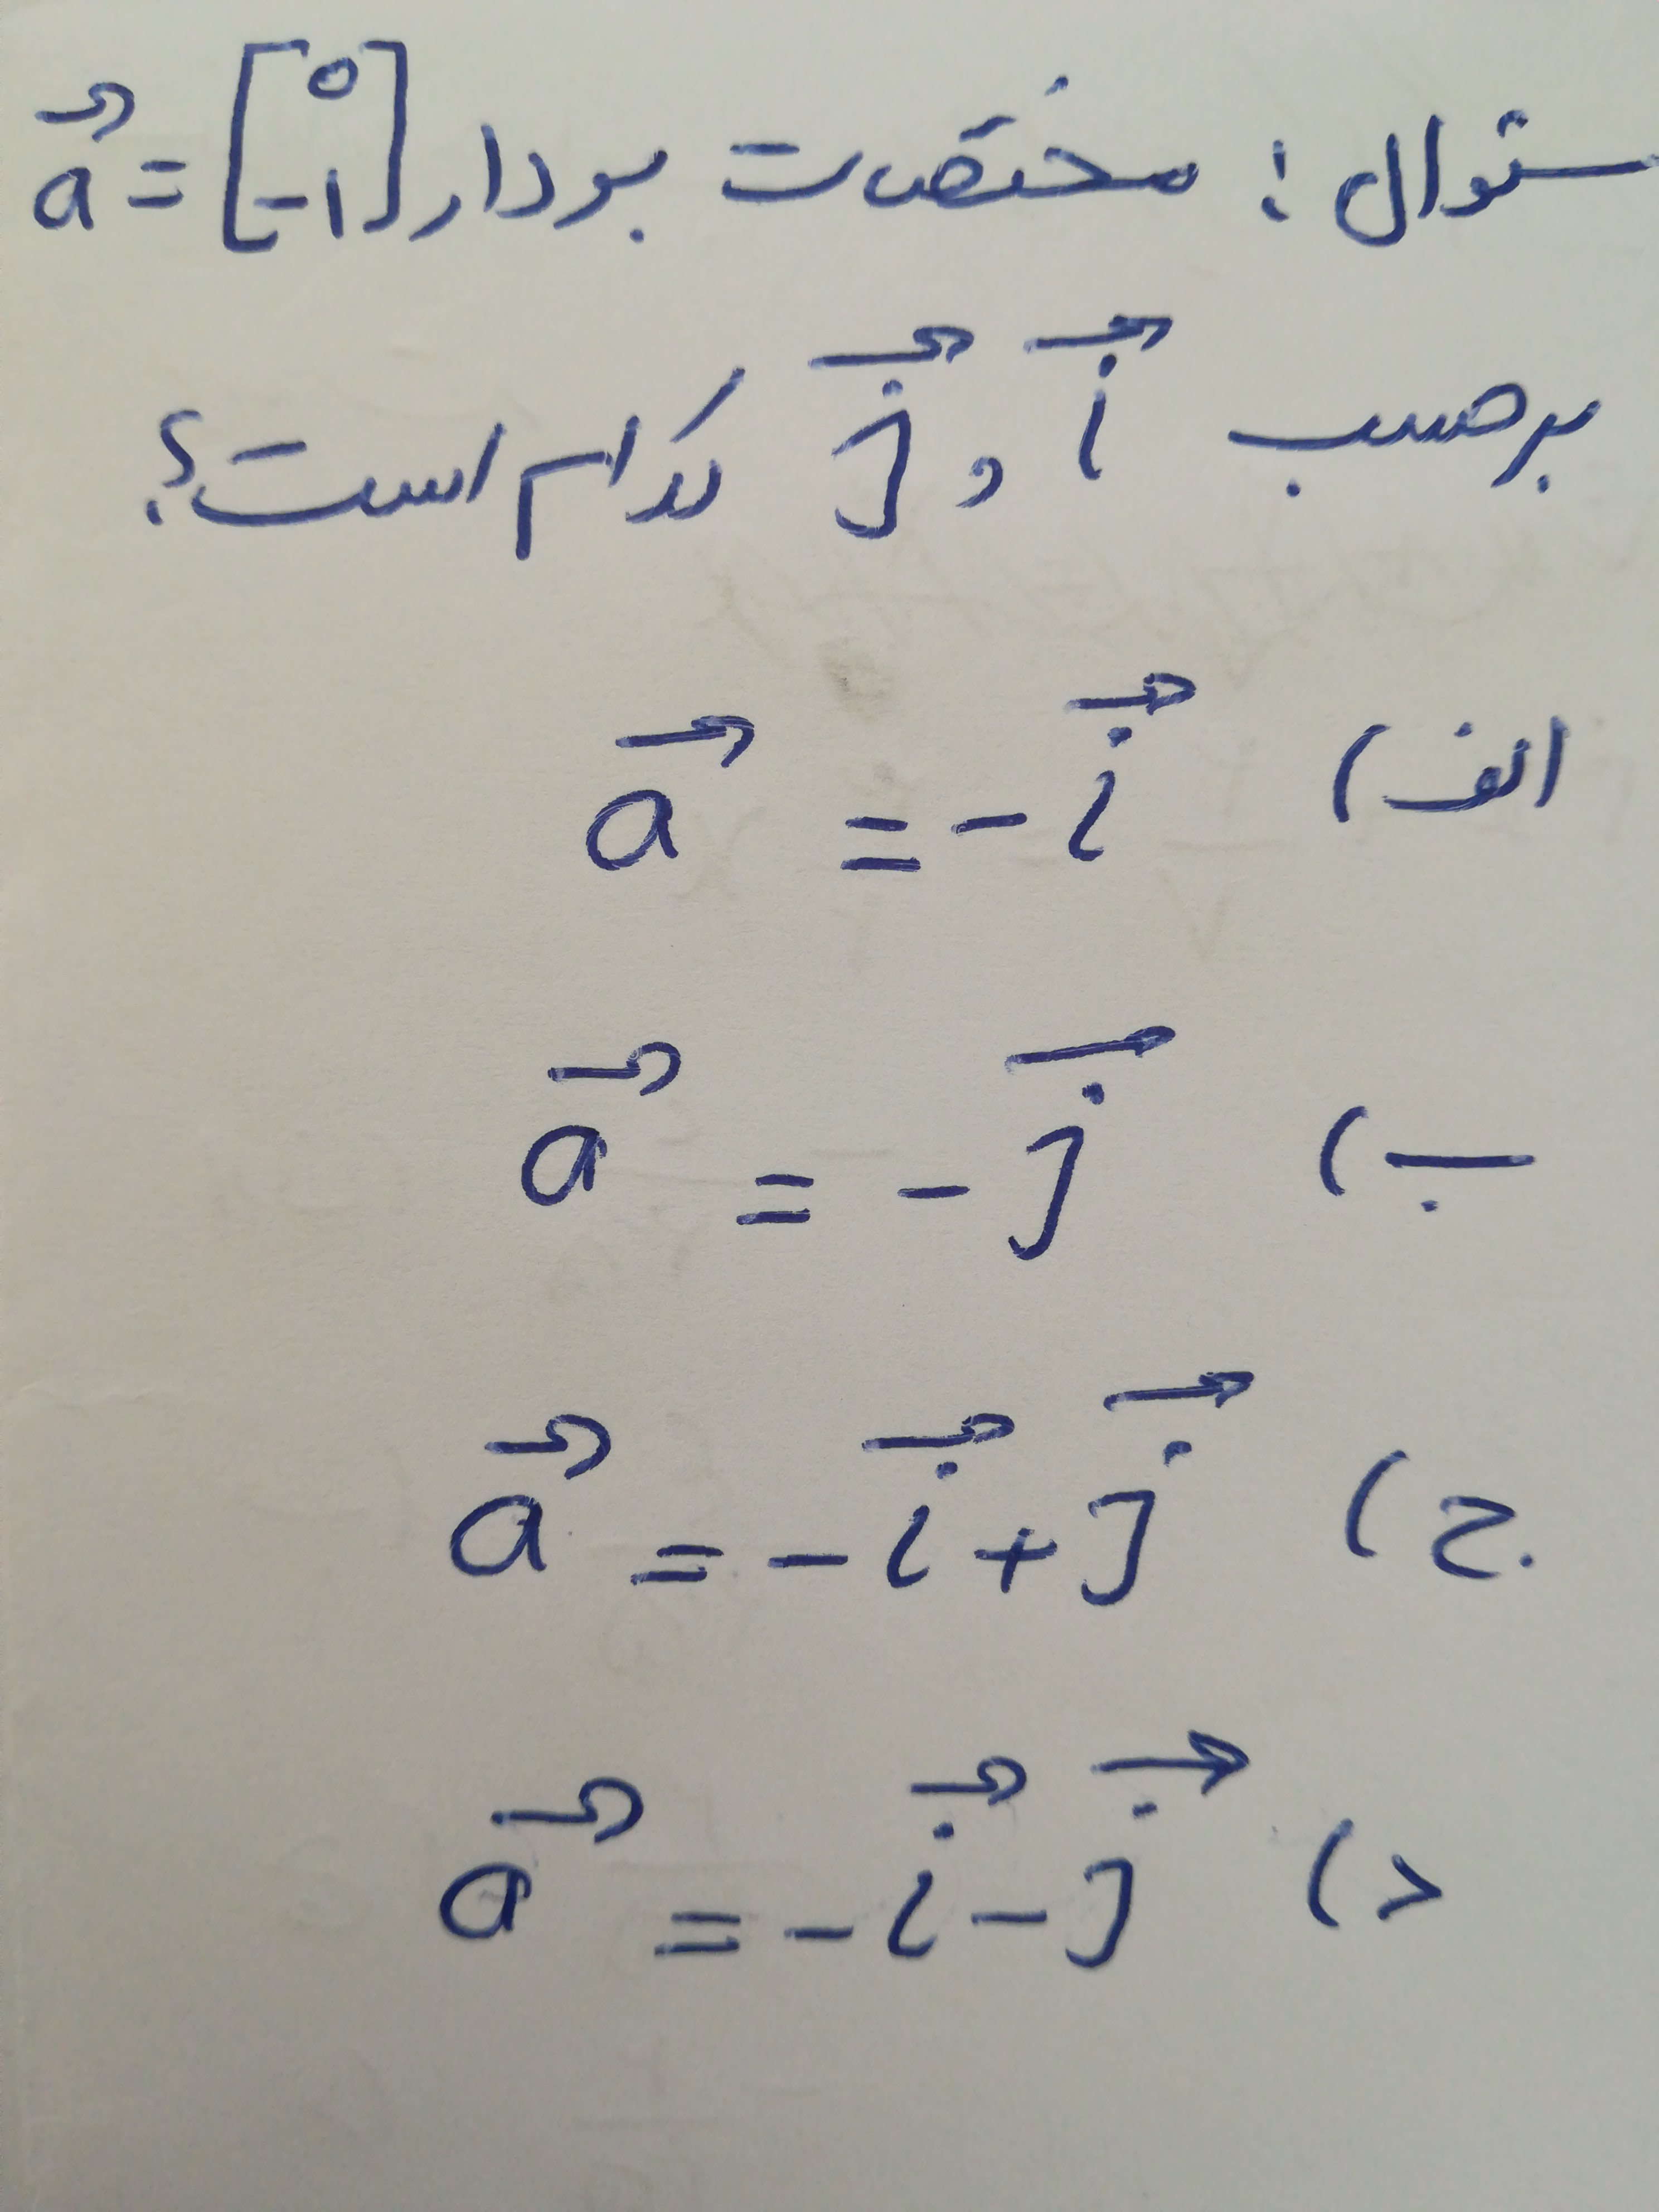 سئوال : مختصات بردار a⃗ = [0 -1]
برحسب i⃗ , j⃗ کدام است؟
الف) a⃗ = -i⃗
ب) a⃗ = -j⃗
ج) a⃗ = -i⃗ + j⃗
د) a⃗ = -i⃗ - j⃗